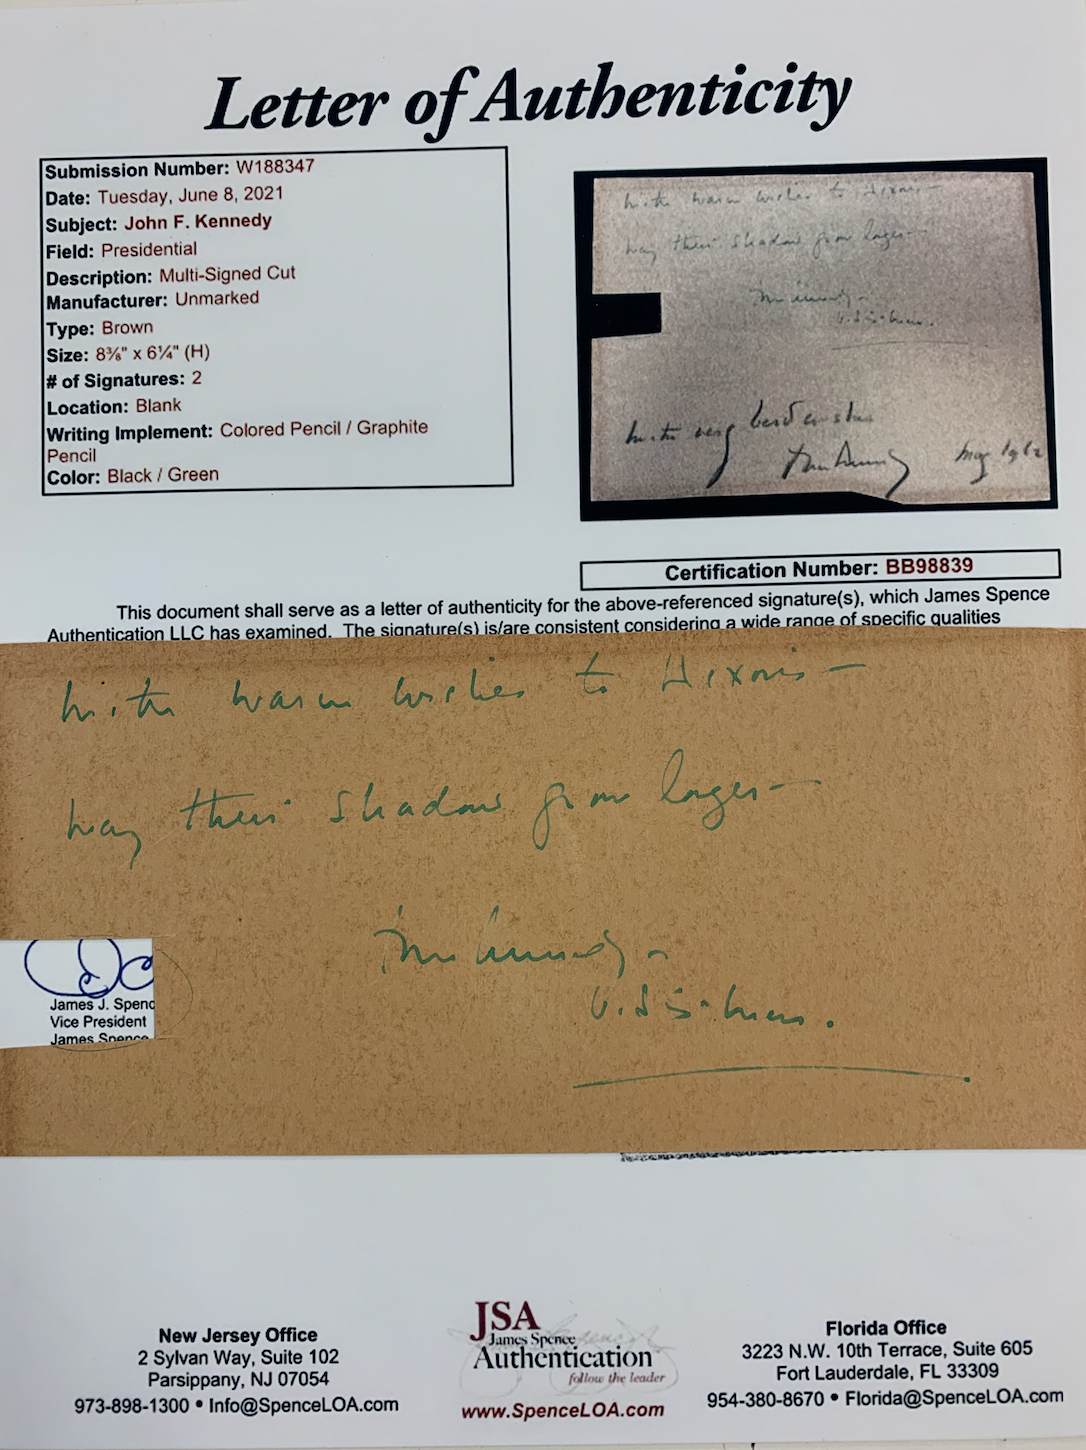 Letter of Authenticity
Submission Number: W188347
Date: Tuesday, June 8, 2021
Subject: John F. Kennedy
Field: Presidential
Description: Multi-Signed Cut
Manufacturer: Unmarked
Type: Brown
Size: 8⅜" x 6¼" (H)
# of Signatures: 2
Location: Blank
Writing Implement: Colored Pencil / Graphite
Pencil
Color: Black / Green
with warm wishes to Dixons —
may their shadows grow larger —
with very best wishes
May 1962
Certification Number: BB98839
This document shall serve as a letter of authenticity for the above-referenced signature(s), which James Spence
Authentication LLC has examined. The signature(s) is/are consistent considering a wide range of specific qualities
with warm wishes to Dixons —
may their shadows grow larger —
James J. Spenc
Vice President
James Spence
New Jersey Office
2 Sylvan Way, Suite 102
Parsippany, NJ 07054
973-898-1300 • Info@SpenceLOA.com
JSA
James Spence
Authentication
follow the leader
www.SpenceLOA.com
Florida Office
3223 N.W. 10th Terrace, Suite 605
Fort Lauderdale, FL 33309
954-380-8670 • Florida@SpenceLOA.com